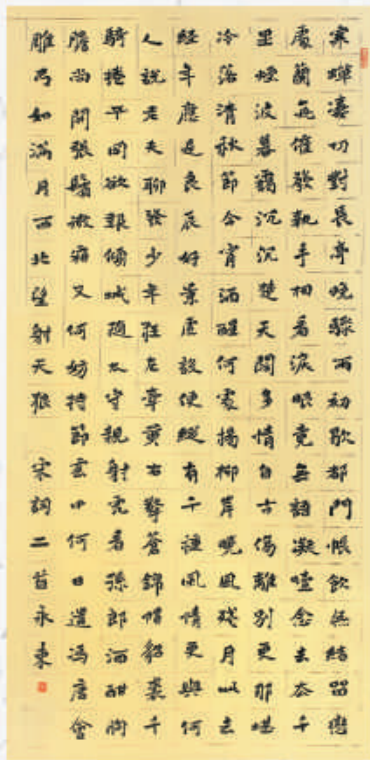 寒蟬凄切對長亭晚驟雨初歇都門帳飲無緒留戀
處蘭舟催發執手相看淚眼竟無語凝噎念去去千
里煙波暮靄沉沉楚天闊多情自古傷離別更那堪
冷落清秋節今宵酒醒何處楊柳岸曉風殘月此去
經年應是良辰好景虛設便縱有千種風情更與何
人說老夫聊發少年狂左牽黃右擎蒼錦帽貂裘千
騎捲平岡欲報傾城隨太守親射虎看孫郎酒酣胸
膽尚開張鬢微霜又何妨持節雲中何日遣馮唐會
雕弓如滿月西北望射天狼 宋詞二首永東